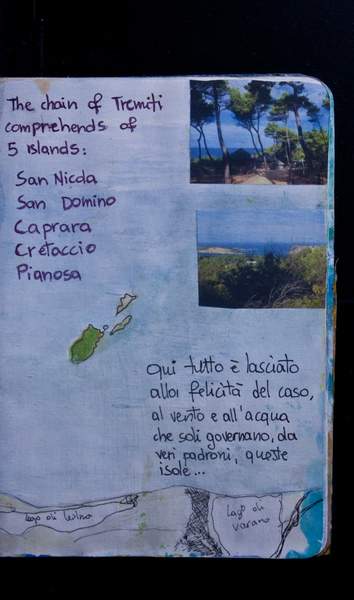 The chain of Tremiti
comprehends of
5 islands:
San Nicola
San Domino
Caprara
Cretaccio
Pianosa
qui tutto è lasciato
alla felicità del caso,
al vento e all'acqua
che soli governano, da
veri padroni, queste
isole...
Lago di
Lago di
varano